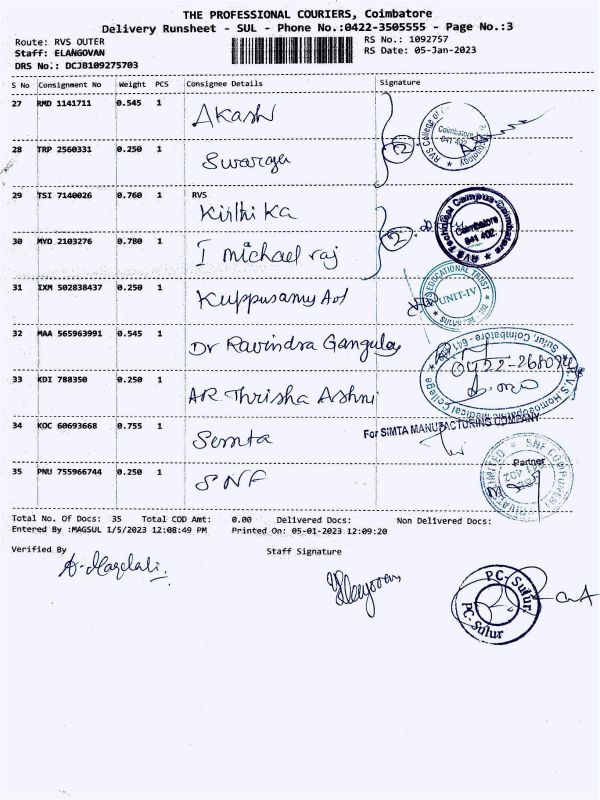 THE PROFESSIONAL COURIERS, Coimbatore
Delivery Runsheet - SUL - Phone No.:0422-3505555 - Page No.:3
Route: RVS OUTER RS No.: 1092757
Staff: ELANGOVAN RS Date: 05-Jan-2023
DRS No.: DCJB109275703
S No Consignment No Weight PCS Consignee Details Signature
27 RMD 1141711 0.545 1 Akash
28 TRP 2560331 0.250 1 Swarga
29 TSI 7140026 0.760 1 RVS
Kirthi Ka
30 MYD 2103276 0.780 1 I michael raj
31 IXM 502838437 0.250 1 Kuppusamy
32 MAA 565963991 0.545 1 Dr Ravindra Gangula
33 KDI 788350 0.250 1 AR Thrisha Ashni
34 KOC 60693668 0.755 1 Semta
35 PNU 755966744 0.250 1 SNF
RVS College of
Coimbatore
641 402
RVS Technical Campus-Coimbatore
Coimbatore
641 402.
EDUCATIONAL TRUST
UNIT-IV
0422-268
R.V.S. Homoeopathic Medical College
Sulur, Coimbatore - 641
For SIMTA MANUFACTURING COMPANY
Partner
Total No. Of Docs: 35 Total COD Amt: 0.00 Delivered Docs: Non Delivered Docs:
Entered By :MAGSUL 1/5/2023 12:08:49 PM Printed On: 05-01-2023 12:09:20
Verified By Staff Signature
PC-Sulur
PC-Sulur